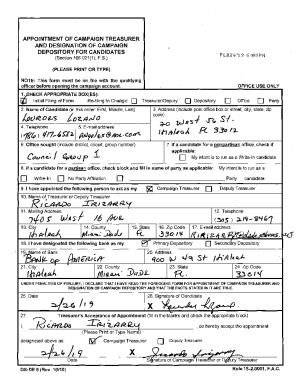 APPOINTMENT OF CAMPAIGN TREASURER
AND DESIGNATION OF CAMPAIGN
DEPOSITORY FOR CANDIDATES
(Section 106.021(1), F.S.)
(PLEASE PRINT OR TYPE)
NOTE: This form must be on file with the qualifying
officer before opening the campaign account.
OFFICE USE ONLY
1. CHECK APPROPRIATE BOX(ES):
Initial Filing of Form Re-filing to Change: Treasurer/Deputy Depository Office Party
2. Name of Candidate (in this order: First, Middle, Last)
LOURDES LOZANO
3. Address (include post office box or street, city, state, zip
code)
20 West 52 St.
Hialeah FL 33012
4. Telephone
5. E-mail address
6. Office sought (include district, circuit, group number)
Council Group I
7. If a candidate for a nonpartisan office, check if
applicable:
My intent is to run as a Write-In candidate.
8. If a candidate for a partisan office, check block and fill in name of party as applicable: My intent is to run as a
Write-In No Party Affiliation Party candidate.
9. I have appointed the following person to act as my Campaign Treasurer Deputy Treasurer
10. Name of Treasurer or Deputy Treasurer
RICARDO IRIZARRY
11. Mailing Address
7405 West 16 Ave
12. Telephone
13. City
Hialeah
14. County
Miami Dade
15. State
FL
16. Zip Code
33014
17. E-mail address
18. I have designated the following bank as my Primary Depository Secondary Depository
19. Name of Bank
BANK OF AMERICA
20. Address
900 W 49 St Hialeah
21. City
Hialeah
22. County
Miami Dade
23. State
FL
24. Zip Code
UNDER PENALTIES OF PERJURY, I DECLARE THAT I HAVE READ THE FOREGOING FORM FOR APPOINTMENT OF CAMPAIGN TREASURER AND
DESIGNATION OF CAMPAIGN DEPOSITORY AND THAT THE FACTS STATED IN IT ARE TRUE.
25. Date
2/26/19
26. Signature of Candidate
X
27. Treasurer's Acceptance of Appointment (fill in the blanks and check the appropriate block)
I, RICARDO IRIZARRY, do hereby accept the appointment
(Please Print or Type Name)
designated above as: Campaign Treasurer Deputy Treasurer.
2/26/19
X
Date
Signature of Campaign Treasurer or Deputy Treasurer
DS-DE 9 (Rev. 10/10)
Rule 1S-2.0001, F.A.C.